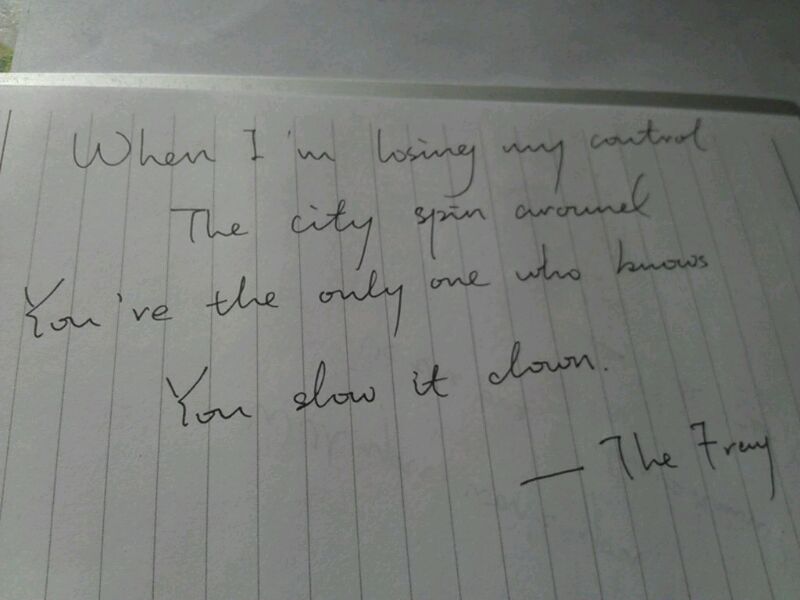 When I'm losing my control
The city spin around
You've the only one who knows
You slow it down.
— The Fray